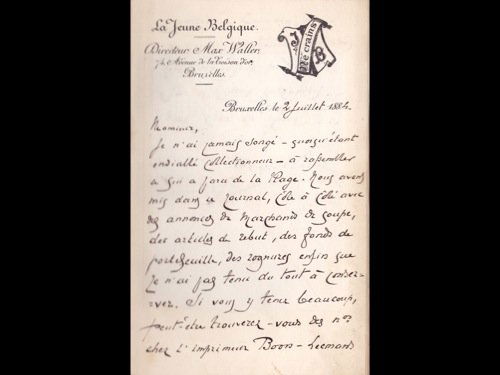 La Jeune Belgique.
Directeur Max Waller.
74, Avenue de la Toison d'or,
Bruxelles.
J B
Ne crains
Bruxelles le 2 Juillet 1884.
Monsieur,
Je n'ai jamais songé – quoiqu'étant
endiablé collectionneur – à rassembler
ce qui a paru de la Plage. Nous avons
mis dans ce journal, côte à côte avec
des annonces de marchands de soupe,
des articles de rebut, des fonds de
portefeuille, des rognures enfin que
je n'ai pas tenu du tout à conser-
ver. Si vous y tenez beaucoup,
peut-être trouverez-vous des nos
chez l'imprimeur Boon-